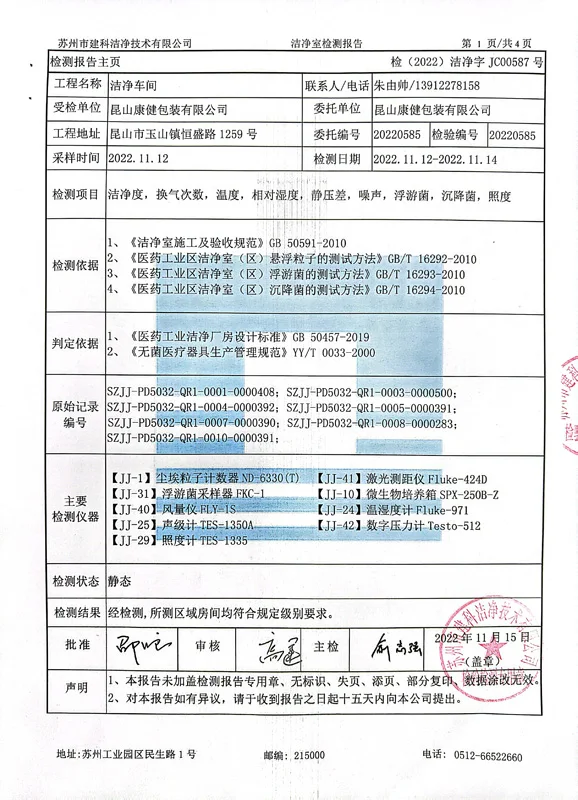 苏州市建科洁净技术有限公司 洁净室检测报告 第 1 页/共 4 页
检测报告主页 检（2022）洁净字 JC00587 号
工程名称 洁净车间 联系人/电话 朱由帅/13912278158
受检单位 昆山康健包装有限公司 委托单位 昆山康健包装有限公司
工程地址 昆山市玉山镇恒盛路 1259 号 委托编号 20220585 检验编号 20220585
采样时间 2022.11.12 检测日期 2022.11.12-2022.11.14
检测项目 洁净度，换气次数，温度，相对湿度，静压差，噪声，浮游菌，沉降菌，照度
检测依据
1、《洁净室施工及验收规范》GB 50591-2010
2、《医药工业区洁净室（区）悬浮粒子的测试方法》GB/T 16292-2010
3、《医药工业区洁净室（区）浮游菌的测试方法》GB/T 16293-2010
4、《医药工业区洁净室（区）沉降菌的测试方法》GB/T 16294-2010
判定依据
1、《医药工业洁净厂房设计标准》GB 50457-2019
2、《无菌医疗器具生产管理规范》YY/T 0033-2000
原始记录编号
SZJJ-PD5032-QR1-0001-0000408；SZJJ-PD5032-QR1-0003-0000500；
SZJJ-PD5032-QR1-0004-0000392；SZJJ-PD5032-QR1-0005-0000391；
SZJJ-PD5032-QR1-0007-0000390；SZJJ-PD5032-QR1-0008-0000283；
SZJJ-PD5032-QR1-0010-0000391；
主要检测仪器
【JJ-1】尘埃粒子计数器 ND-6330(T) 【JJ-41】激光测距仪 Fluke-424D
【JJ-31】浮游菌采样器 FKC-1 【JJ-10】微生物培养箱 SPX-250B-Z
【JJ-40】风量仪 FLY-1S 【JJ-24】温湿度计 Fluke-971
【JJ-25】声级计 TES-1350A 【JJ-42】数字压力计 Testo-512
【JJ-29】照度计 TES-1335
检测状态 静态
检测结果 经检测,所测区域房间均符合规定级别要求。
批准 审核 主检 2022年11月15日
（盖章）
声明
1、本报告未加盖检测报告专用章、无标识、失页、添页、部分复印、数据涂改无效。
2、对本报告如有异议，请于收到报告之日起十五天内向本公司提出。
地址:苏州工业园区民生路 1 号 邮编: 215000 电话: 0512-66522660